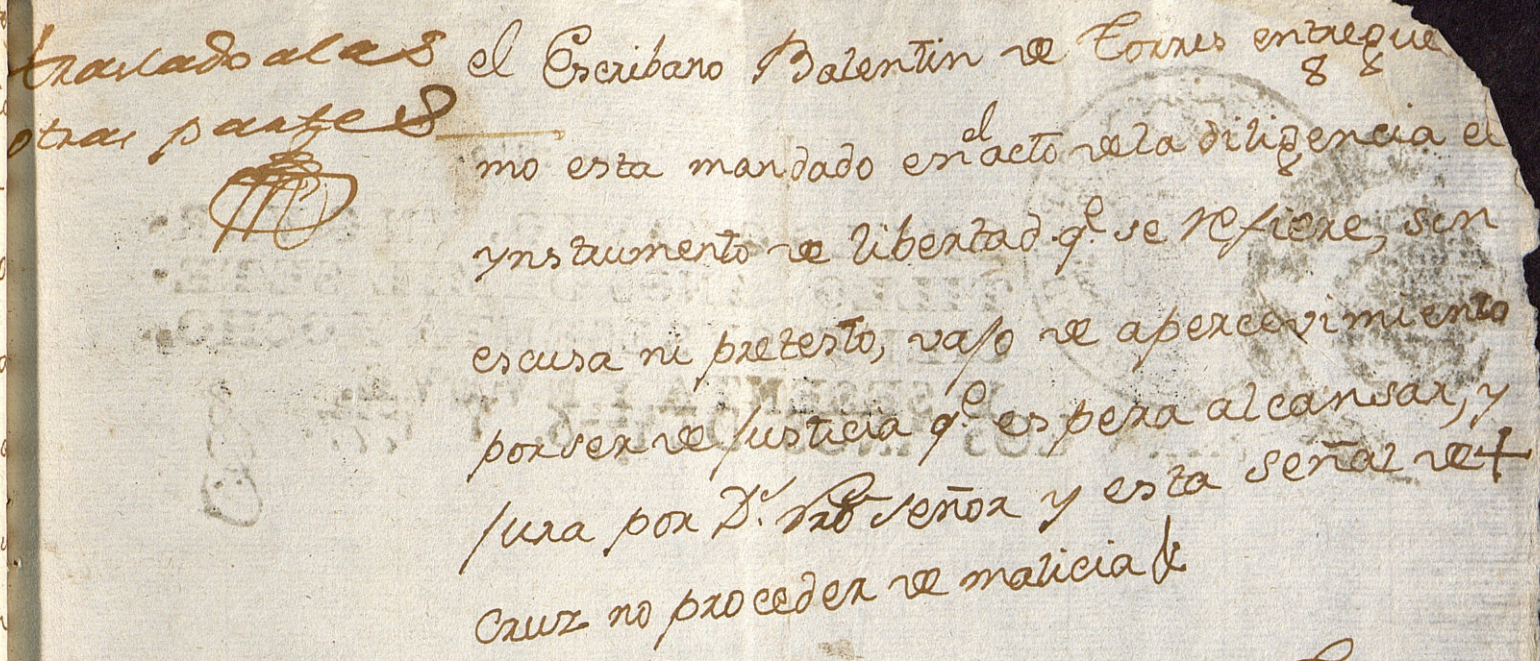 traslado a las
otras partes
el Escribano Balentin de Torres entregue
mo esta mandado en el acto de la diligencia el
ynstrumento de libertad q.e se refiere, sin
escusa ni pretesto, vajo de apercevimiento
por ser de Justicia q.e espera alcansar, y
jura por D.s Nro señor y esta señal de +
Cruz no proceder de malicia &